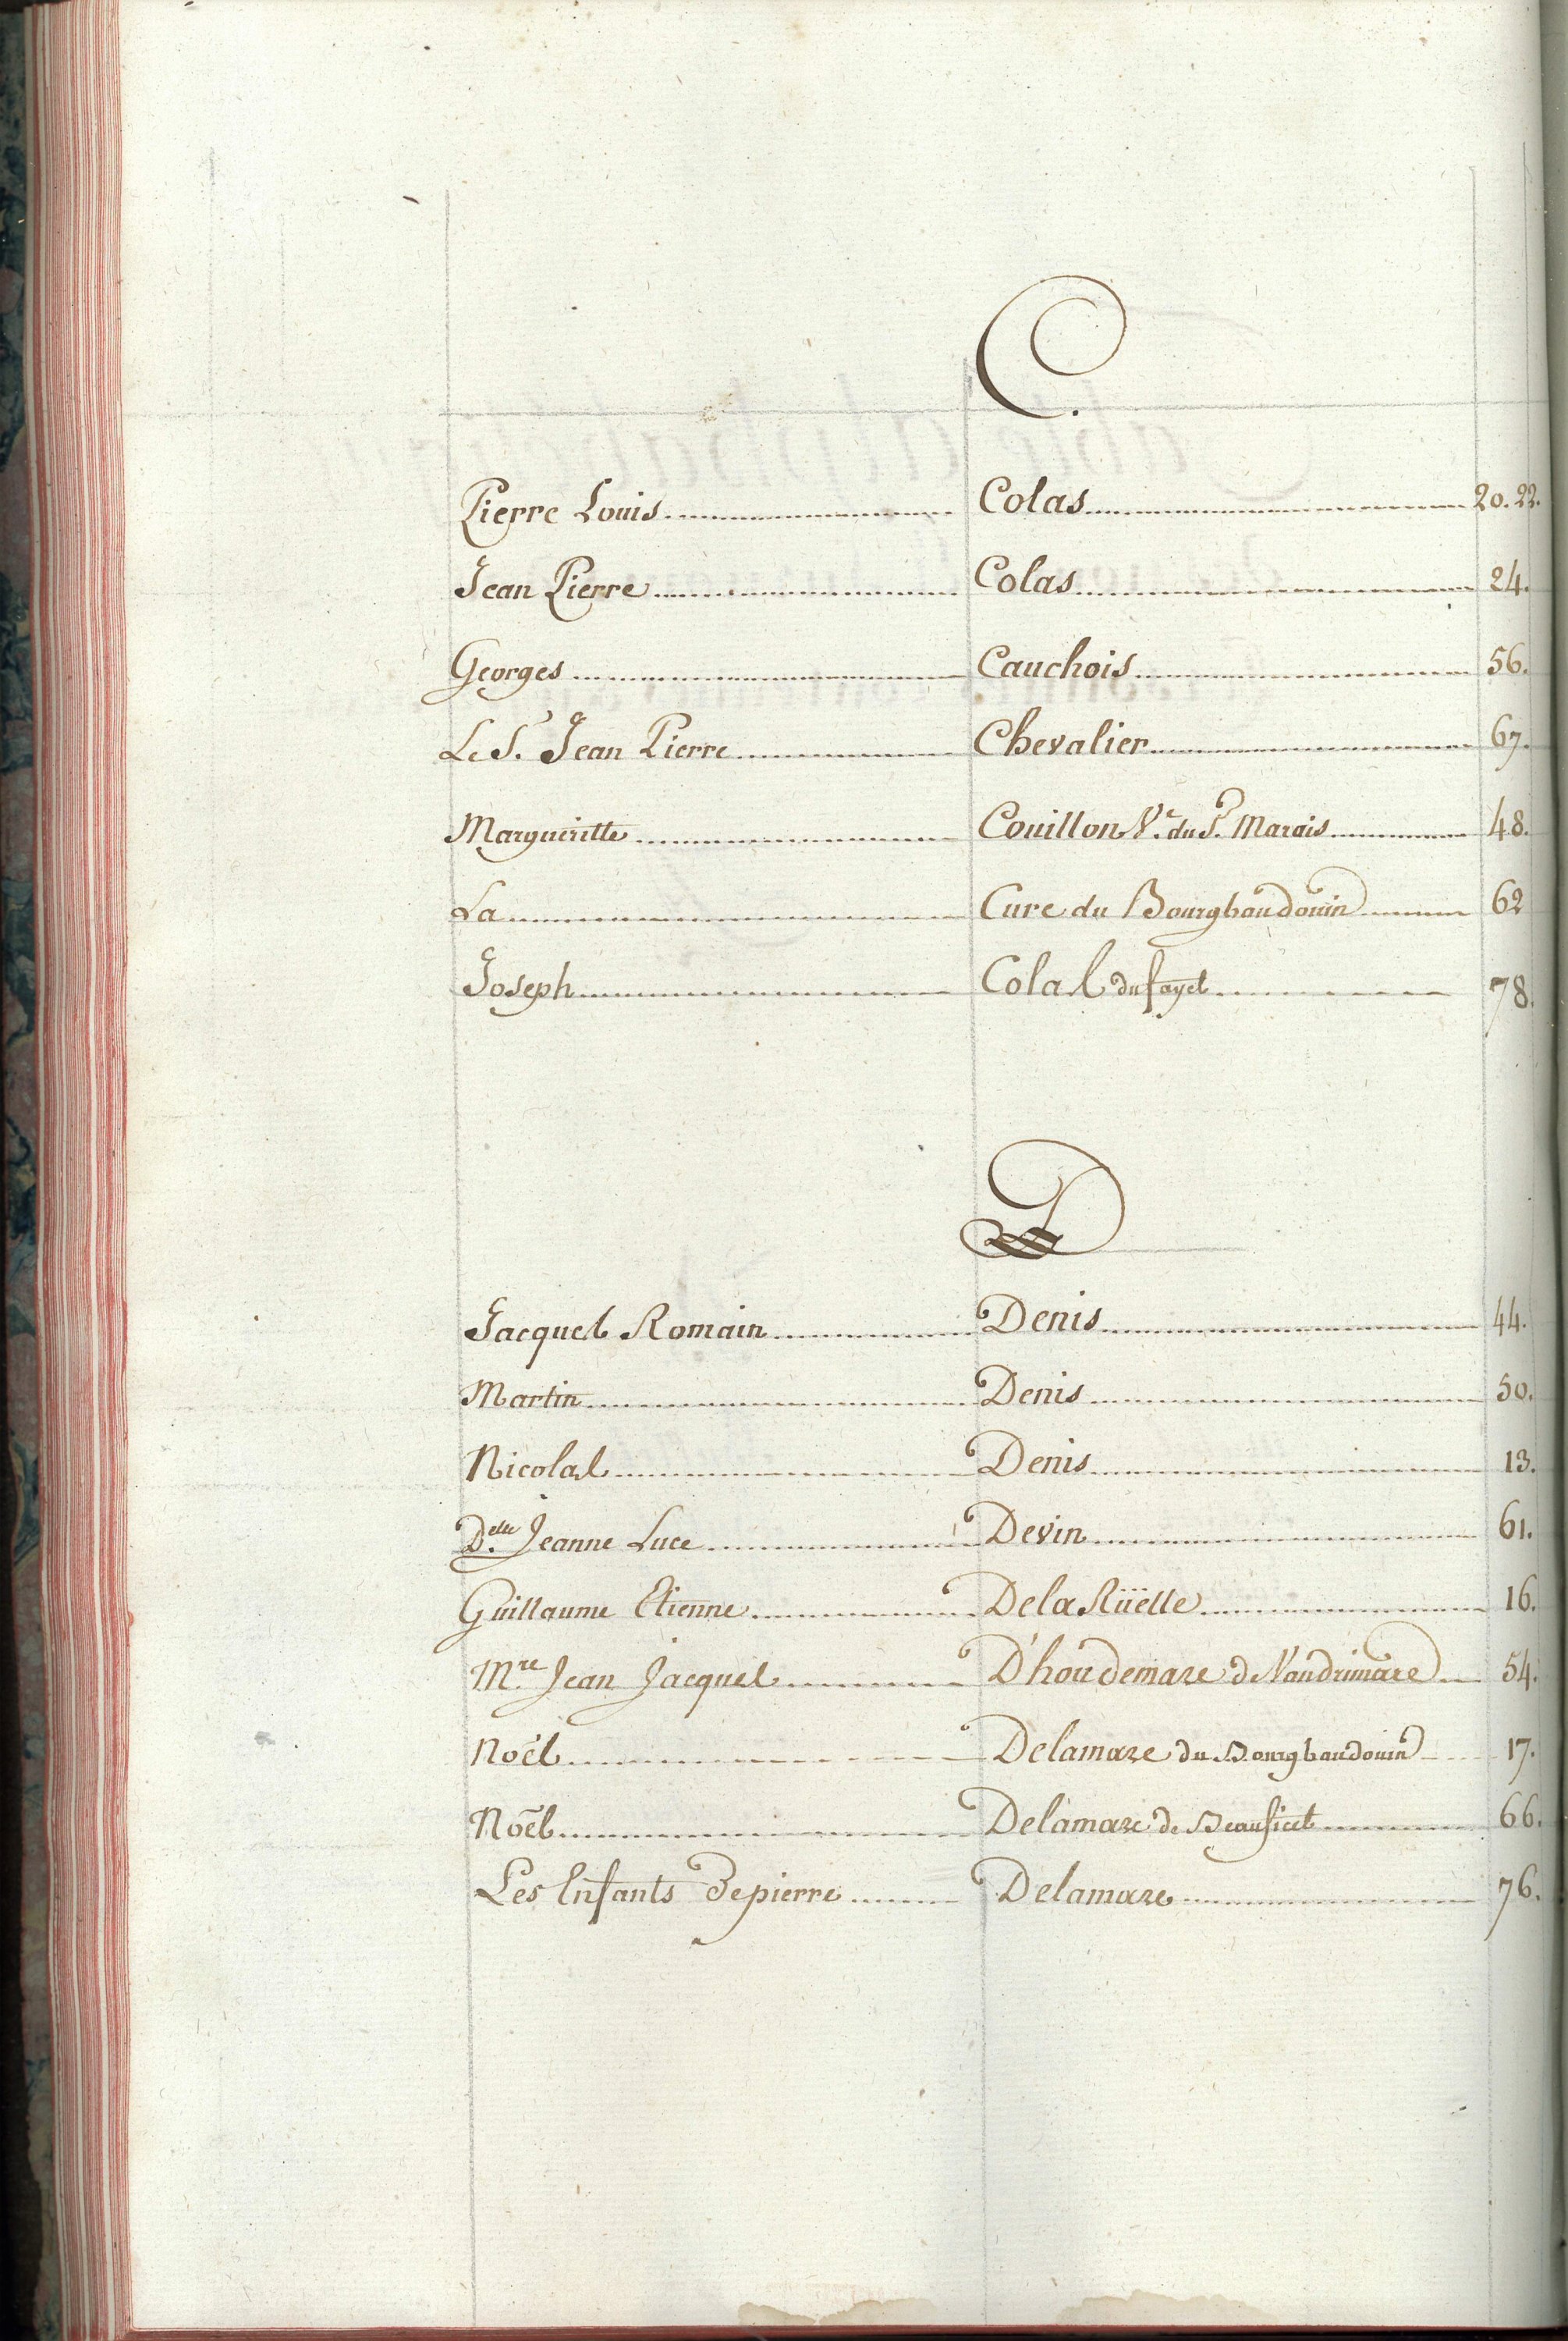 C.
Pierre Louis Colas 20. 22.
Jean Pierre Colas 24.
Georges Cauchois 56.
Le S.r Jean Pierre Chevalier 67.
Margueritte Couillon V.e du S.r Marais 48.
La Cure du Bourgbaudouin 62
Joseph Colas du fayel 78.
D
Jacques Romain Denis 44.
Martin Denis 50.
Nicolas Denis 13.
D.elle Jeanne Luce Devin 61.
Guillaume Etienne De la Rüelle 16.
M.re Jean Jacques D'houdemare de Vandrimare 54.
Noël Delamare du Bourgbaudouin 17.
Noël Delamare de Beauficet 66.
Les Enfants de pierre Delamare 76.